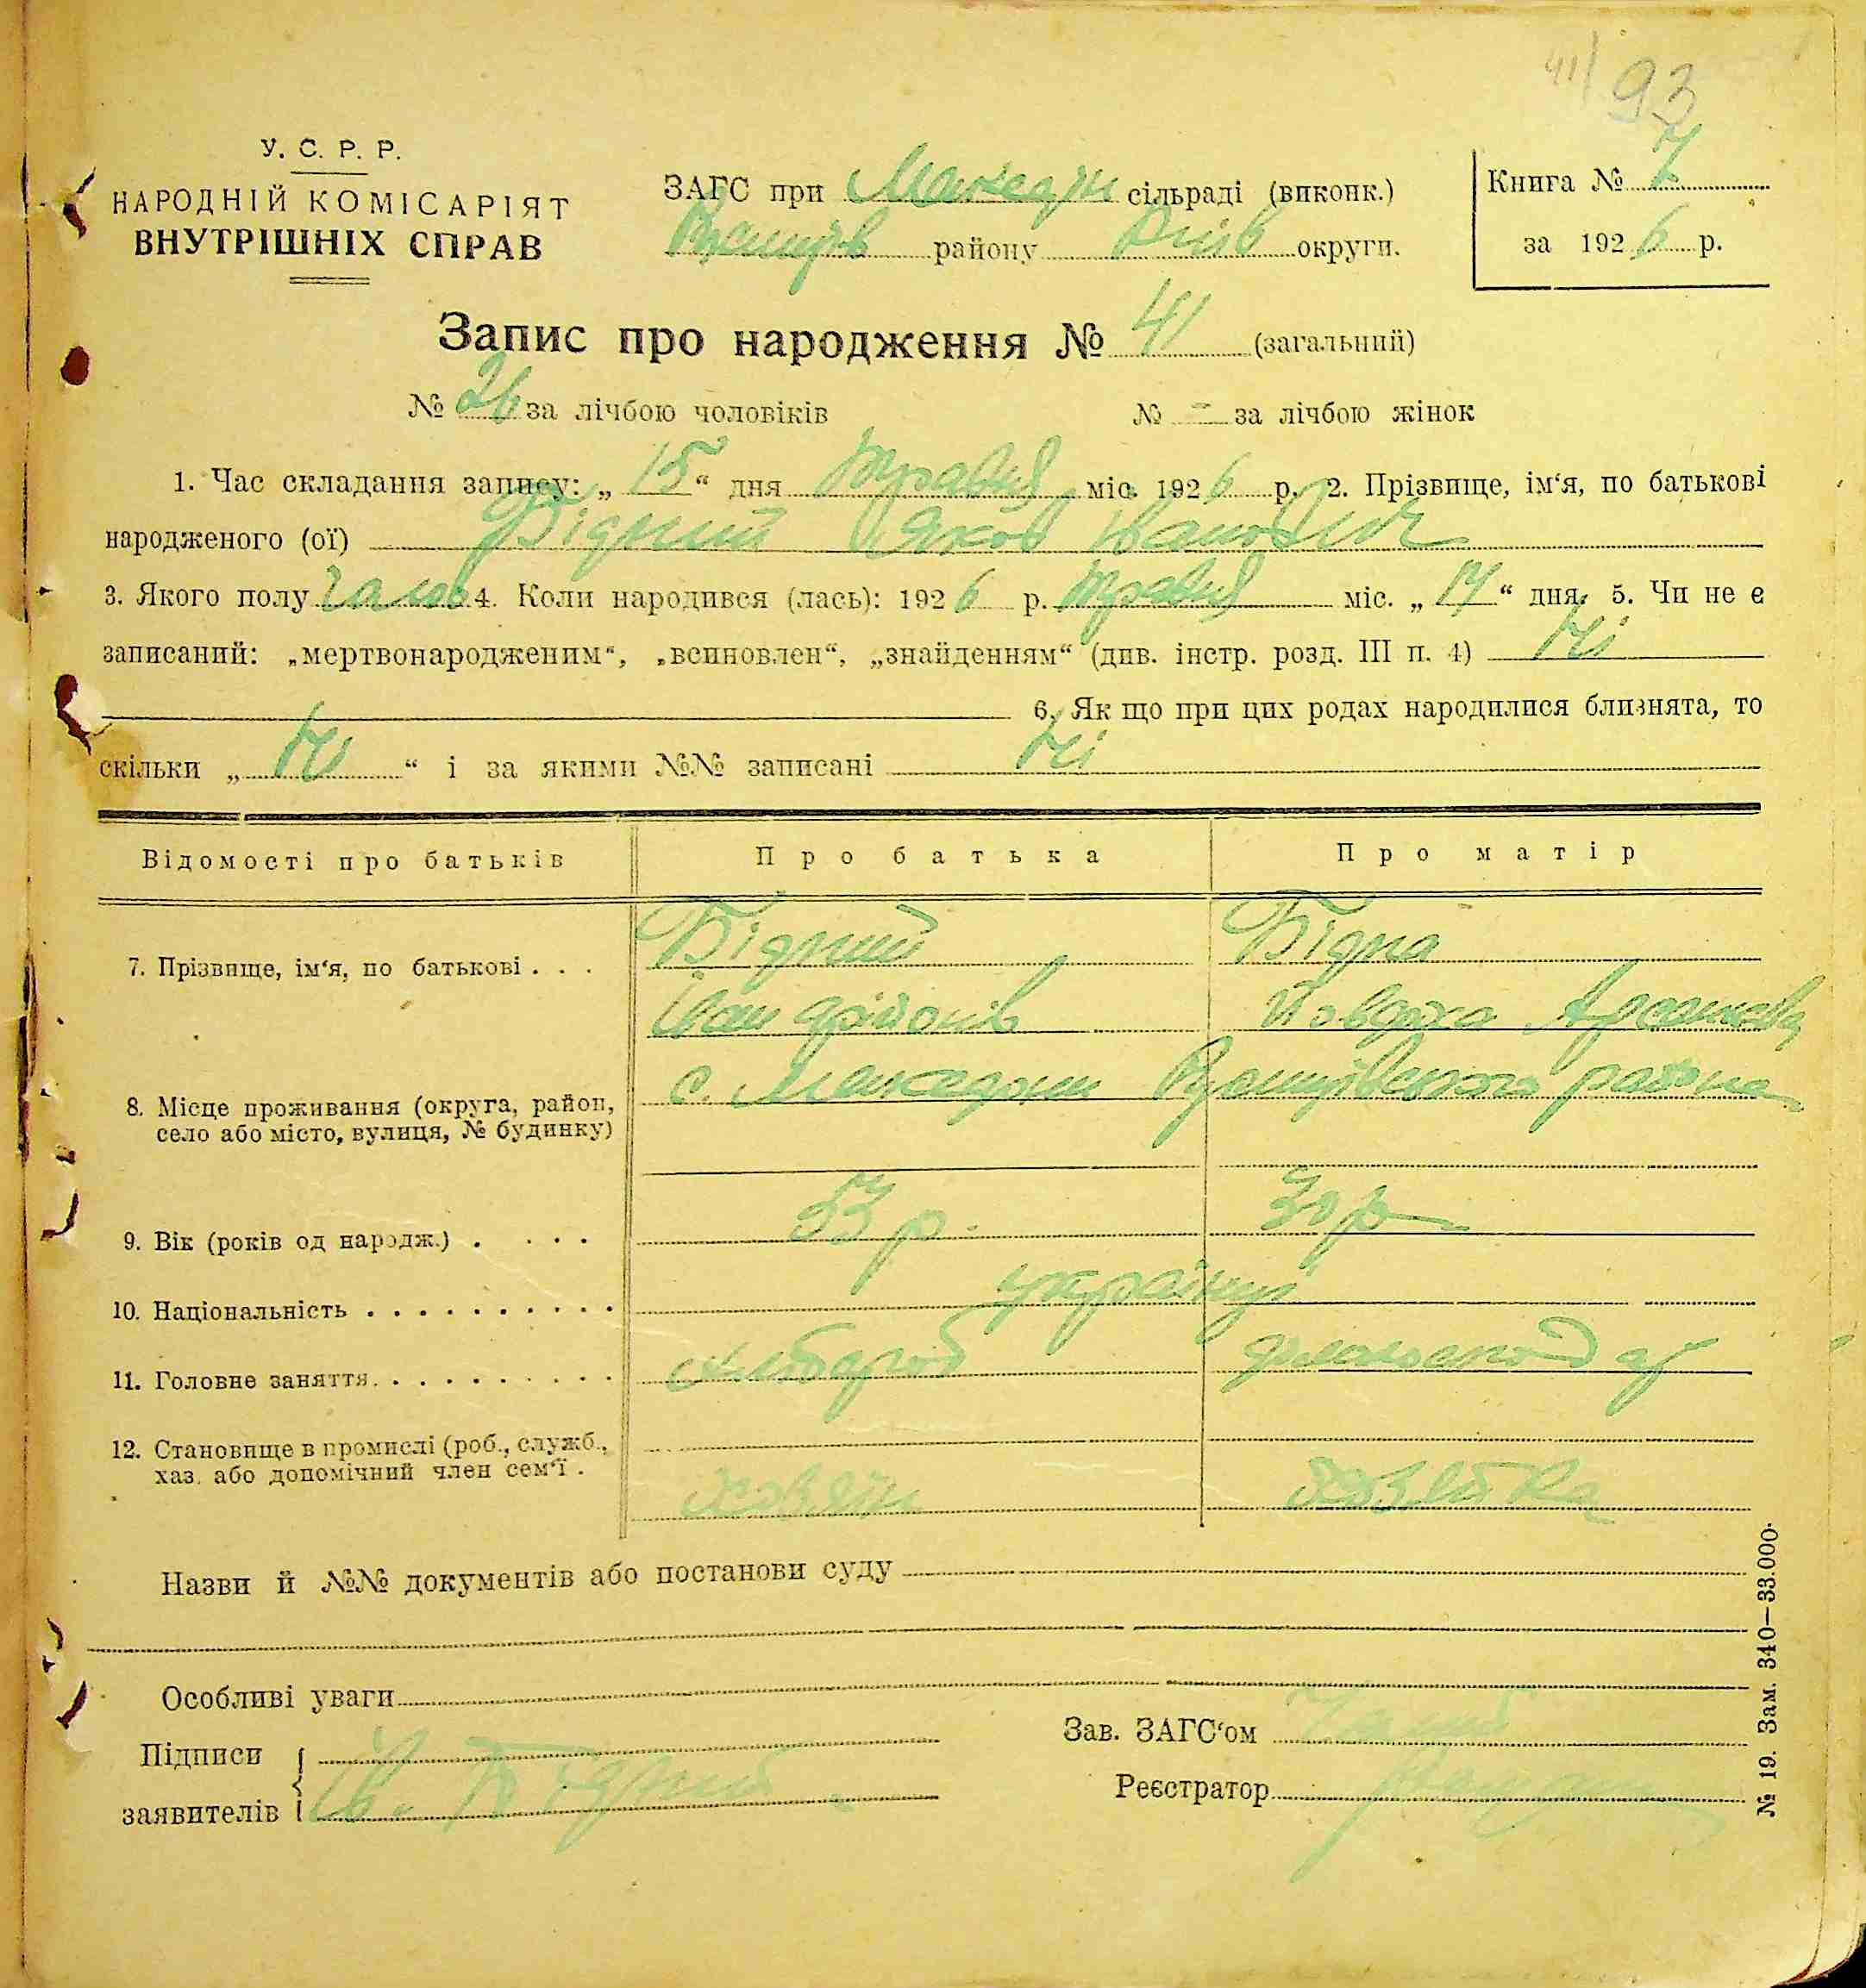 41/93
У. С. Р. Р.
НАРОДНІЙ КОМІСАРІЯТ
ВНУТРІШНІХ СПРАВ
ЗАГС при Македон сільраді (виконк.)
Ржищів району Київ округи.
Книга № 7
за 1926 р.
Запис про народження № 41 (загальний)
№ 26 за лічбою чоловіків № - за лічбою жінок
1. Час складання запису: „15“ дня травня міс. 1926 р. 2. Прізвище, ім‘я, по батькові
народженого (ої) Бідний Яков Іванович
3. Якого полу чолов 4. Коли народився (лась): 1926 р. травня міс. „14“ дня, 5. Чи не є
записаний: „мертвонародженим“, „всиновлен“, „знайденням“ (див. інстр. розд. III п. 4) Ні
6. Як що при цих родах народилися близнята, то
скільки „Ні“ і за якими №№ записані Ні
Відомості про батьків Про батька Про матір
7. Прізвище, ім‘я, по батькові . . . Бідний Бідна
Іван Йовдоха
8. Місце проживання (округа, район, с. Македони Ржищівського района
село або місто, вулиця, № будинку)
9. Вік (років од народж.) . . . . 33 р. 30 р
10. Національність . . . . . . . . . . українці
11. Головне заняття. . . . . . . . . . хлібороб
12. Становище в промислі (роб., служб.,
хаз. або допомічний член сем‘ї . Хазяїн Хазяйка
Назви й №№ документів або постанови суду
Особливі уваги
Підписи
заявителів Ів. Бідний
Зав. ЗАГС‘ом
Реєстратор
№ 19. Зам. 340—33.000.